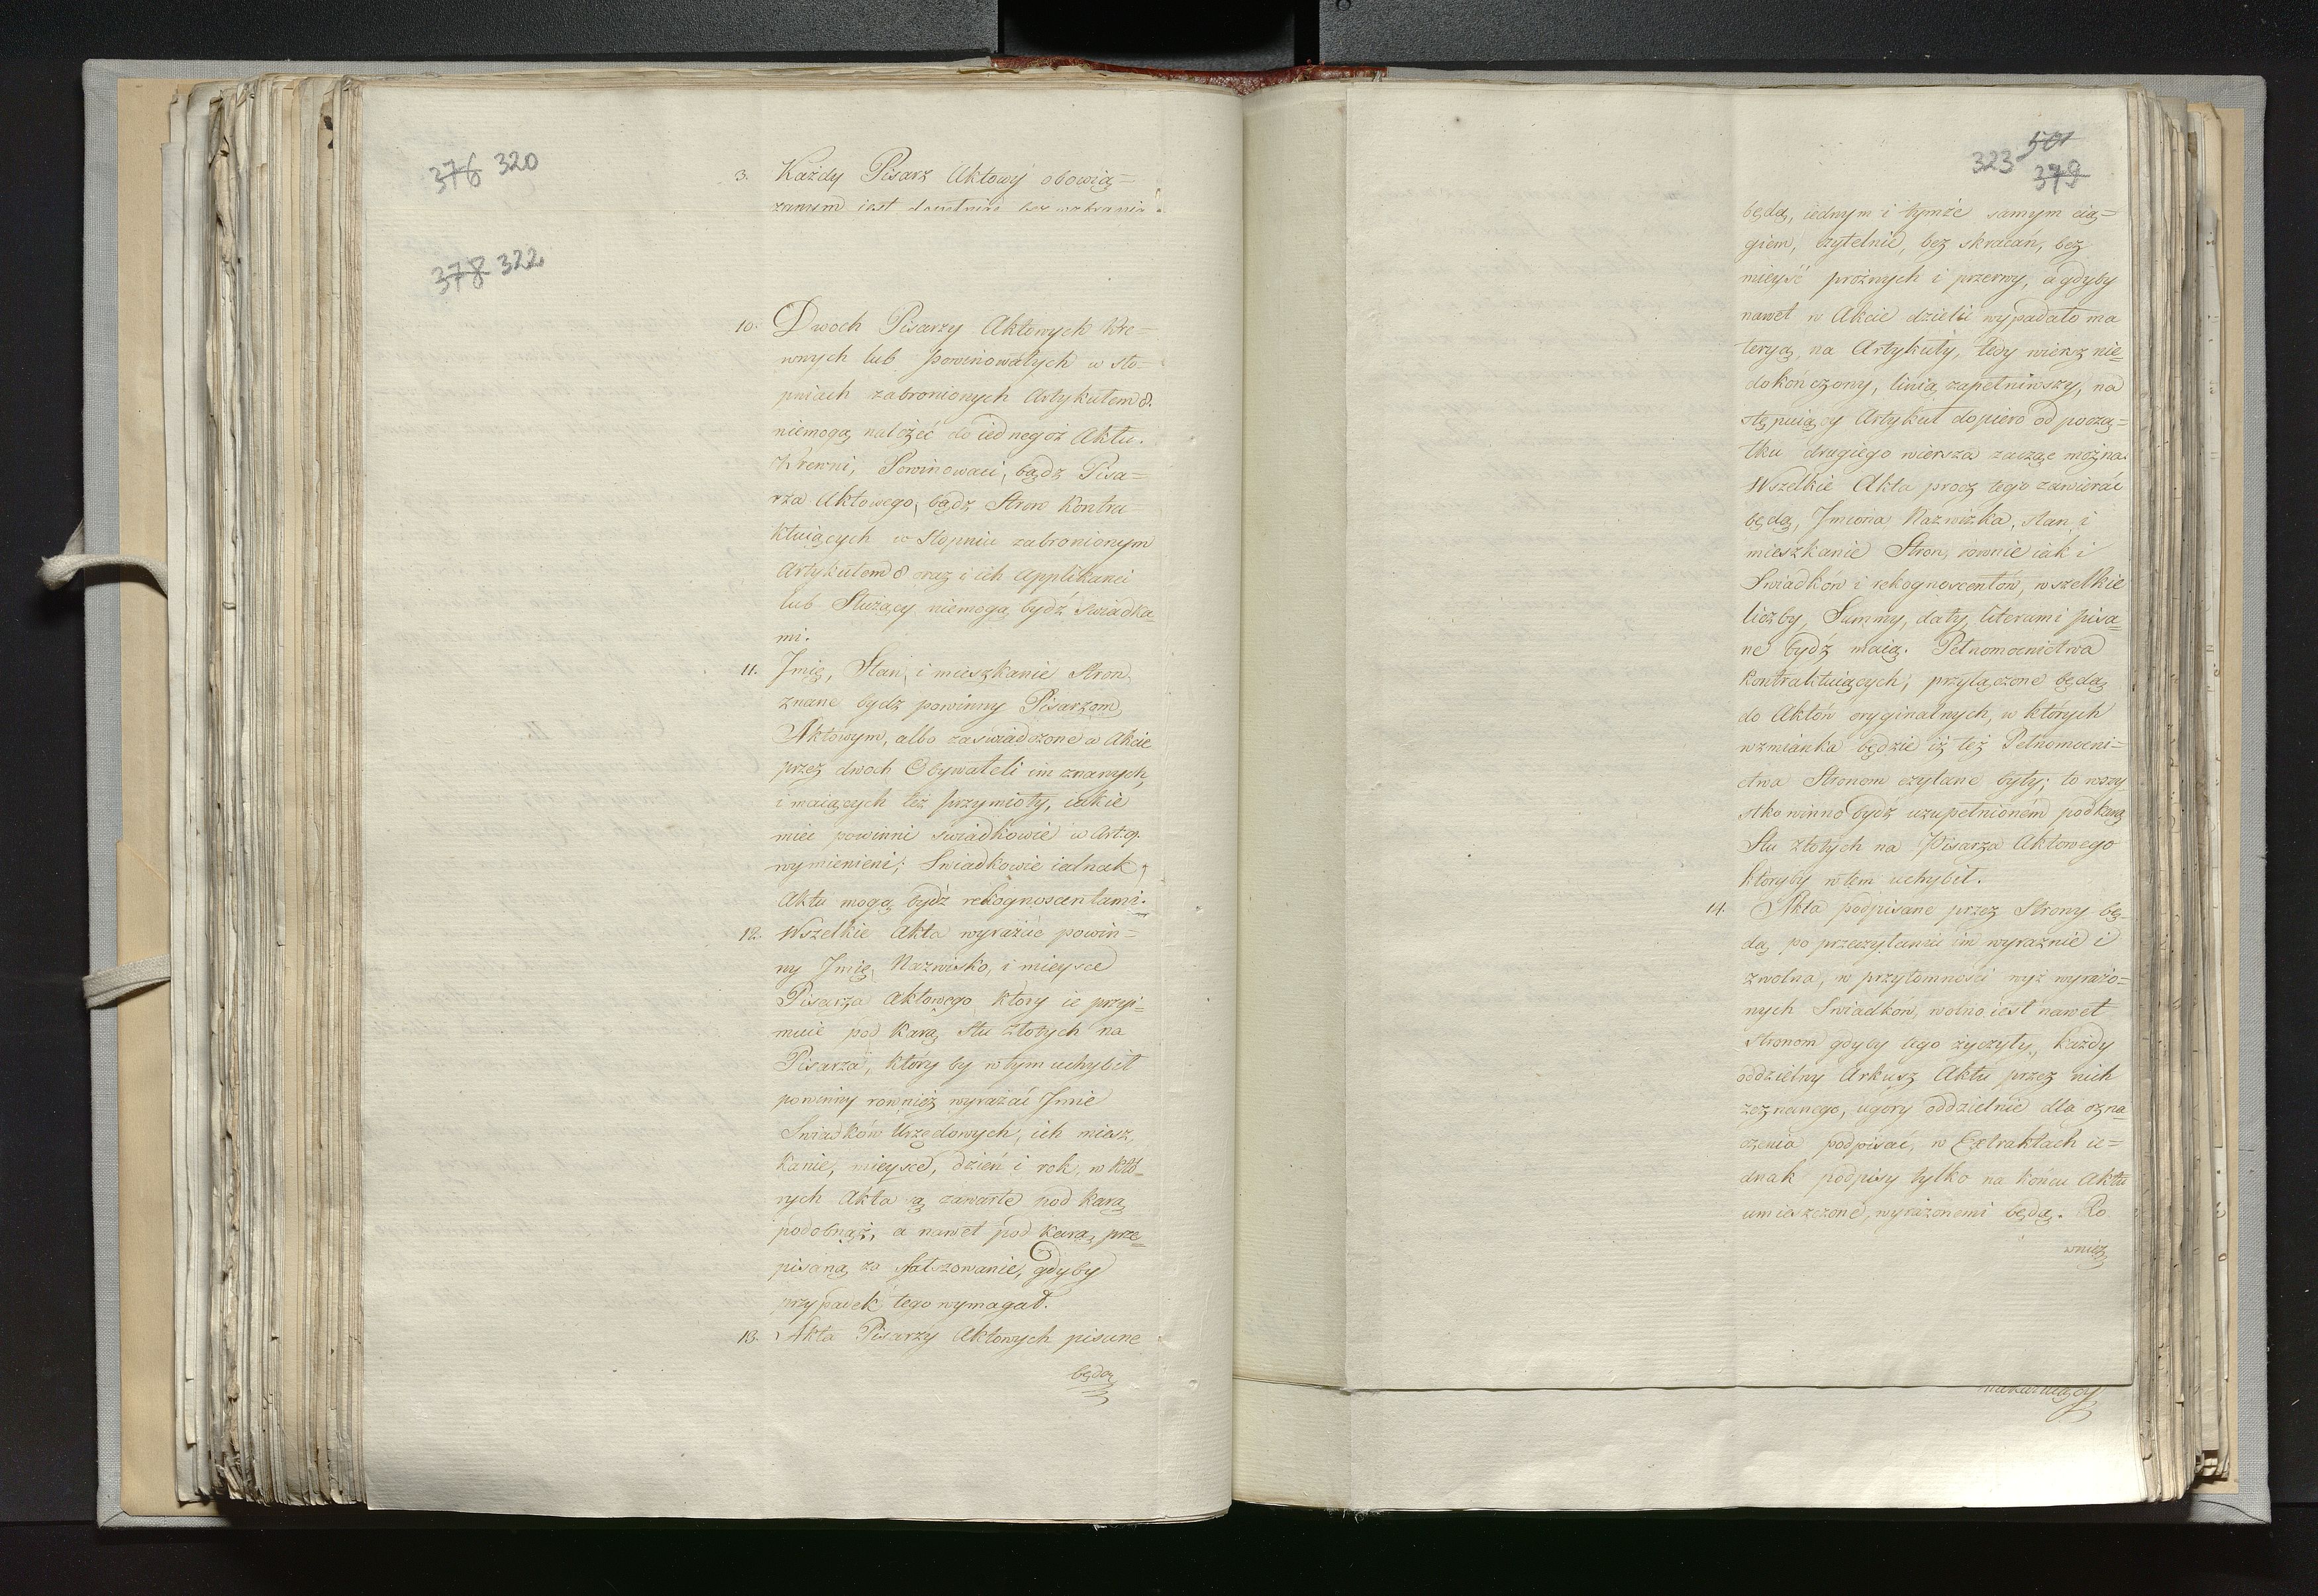 376 320
378 322
3. Każdy Pisarz Aktowy obowią=
zanem iest
10. Dwoch Pisarzy Aktowych Kre=
wnych lub powinowatych w sto=
pniach zabronionych Artykułem 8.
niemogą należeć do iednegoż Aktu.
Krewni, Powinowaci, bądz Pisa=
rza Aktowego, bądz Stron Kontra=
ktuiących w Stopniu zabronionym
Artykułem 8 oraz i ich Applikanci
lub Służący niemogą bydź świadka=
mi.
11. Jmię, Stan, i mieszkanie Stron
znane bydz powinny Pisarzom
Aktowym, albo zaświadczone w Akcie
przez dwoch Obywateli im znanych,
i maiących też przymioty, iakie
mieć powinni świadkowie w Art: 9.
wymienieni; Swiadkowie iednak,
Aktu mogą bydź rekognoscentami.
12. Wszelkie Akta wyrażać powin=
ny Jmię, Nazwisko, i mieysce
Pisarza Aktowego, ktory ie przyi=
muie pod karą stu złotych na
Pisarza, który by w tym uchybił
powinny rownież wyrażać Jmie
Swiadków Urzędowych, ich miesz=
kanie, mieysce, dzień i rok, w któ=
rych Akta są zawarte pod karą
podobnąż, a nawet pod karą prze=
pisaną za fałszowanie, gdyby
przypadek tego wymagał.
13. Akta Pisarzy Aktowych pisane
będą
323 501
379
będą, iednym i tymże samym cią=
giem, czytelnie, bez skracań, bez
mieysć prożnych i przerwy, a gdyby
nawet w Akcie dzielić wypadało ma
teryą, na Artykuły, tedy wiersz nie=
dokończony, linią zapełniwszy, na
stępuiący Artykuł dopiero od począ=
tku drugiego wiersza zacząć można.
Wszelkie Akta procz tego zawierać
będą, Jmiona Nazwizka, stan i
mieszkanie Stron, rownie iak i
Swiadków i rekognoscentów, wszelkie
liczby, Summy, daty, literami pisa=
ne bydź maią. Pełnomocnictwa
kontraktuiących, przyłączone będą
do Aktów oryginalnych, w których
wzmianka będzie iż też Pełnomocni=
ctwa Stronom czytane były; to wszy
stko winno bydz uzupełnioném pod karą
Stu złotych na Pisarza Aktowego
ktoryby w tem uchybił.
14. Akta podpisane przez Strony bę=
dą po przeczytaniu im wyraźnie i
zwolna, w przytomności wyż wyrażo=
nych Swiadków, wolno iest nawet
stronom gdyby tego życzyły, każdy
oddzielny Arkusz Aktu przez nich
zeznanego, ugory oddzielnie dla ozna
czenia podpisać, w Extraktach ie=
dnak podpisy tylko na końcu Aktu
umieszczone, wyrażonemi będą. Ro
wnież